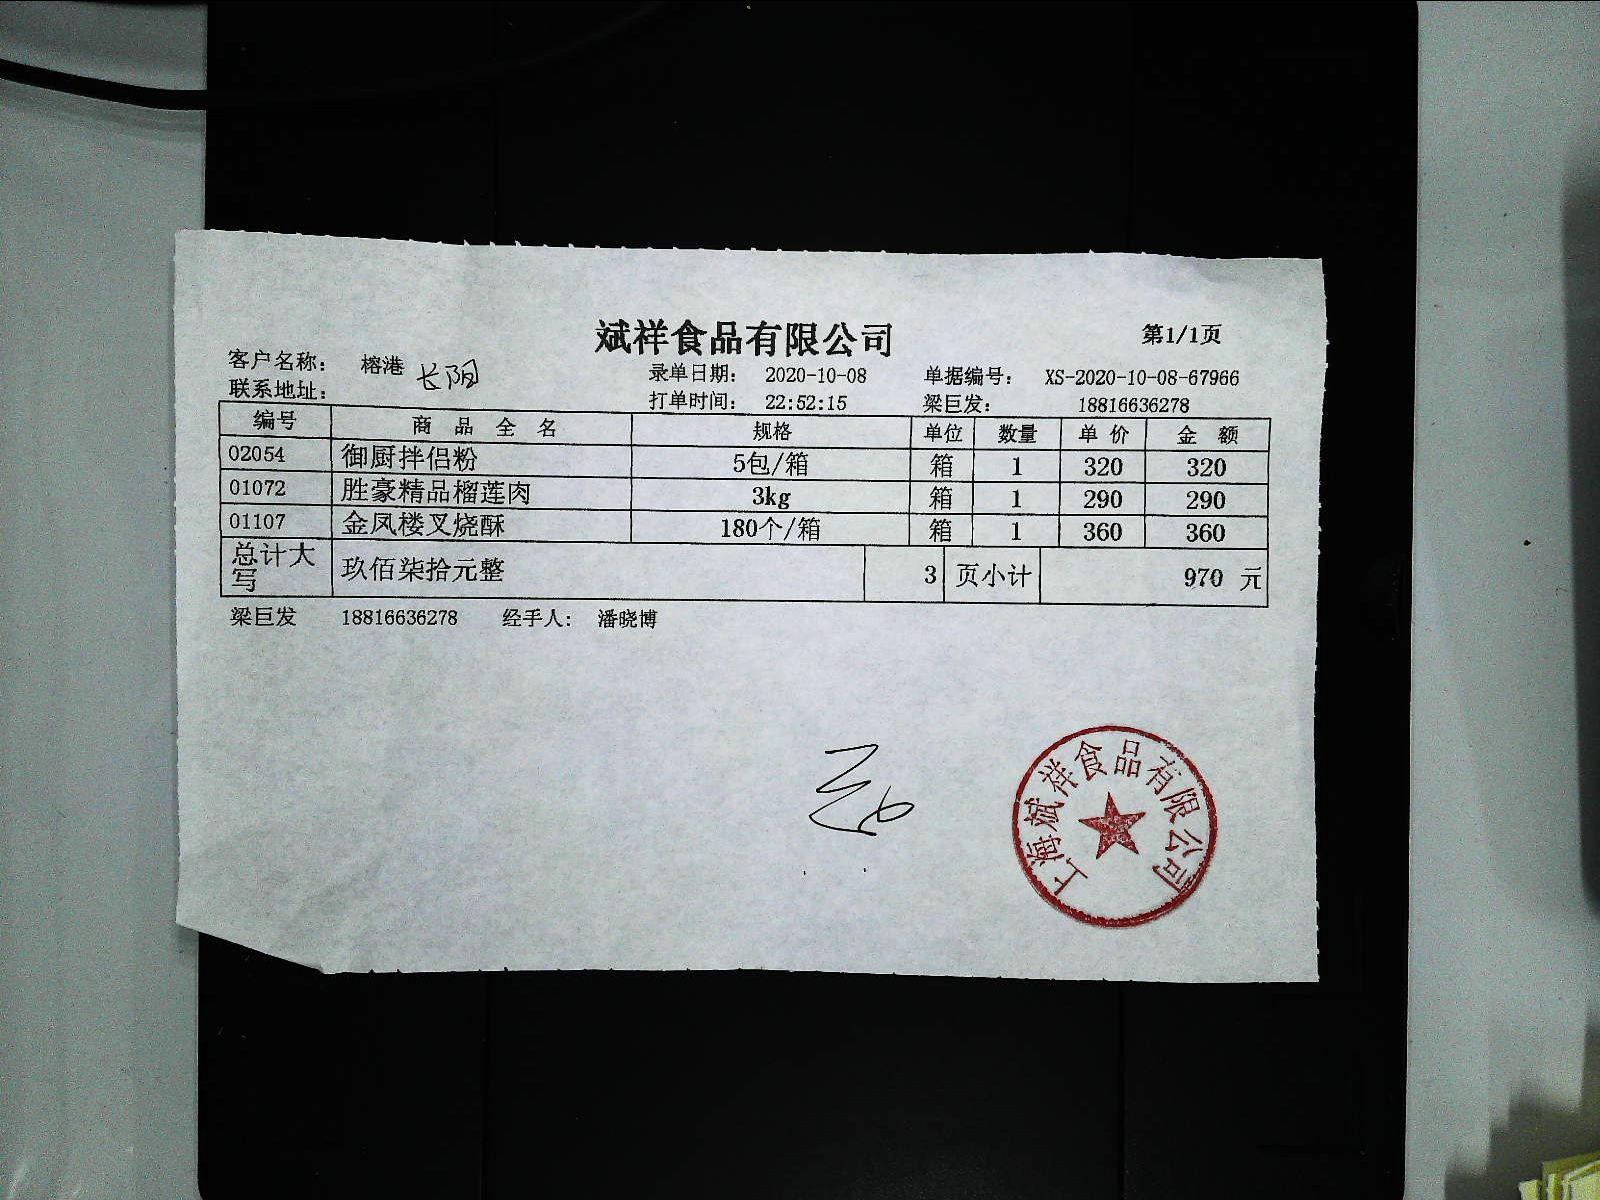 斌祥食品有限公司
第1/1页
客户名称： 榕港 长阳
录单日期： 2020-10-08 单据编号： XS-2020-10-08-67966
联系地址：
打单时间： 22:52:15 梁巨发： 18816636278
编号 商品全名 规格 单位 数量 单价 金额
02054 御厨拌侣粉 5包/箱 箱 1 320 320
01072 胜豪精品榴莲肉 3kg 箱 1 290 290
01107 金凤楼叉烧酥 180个/箱 箱 1 360 360
总计大写 玖佰柒拾元整 3 页小计 970 元
梁巨发 18816636278 经手人： 潘晓博
上海斌祥食品有限公司